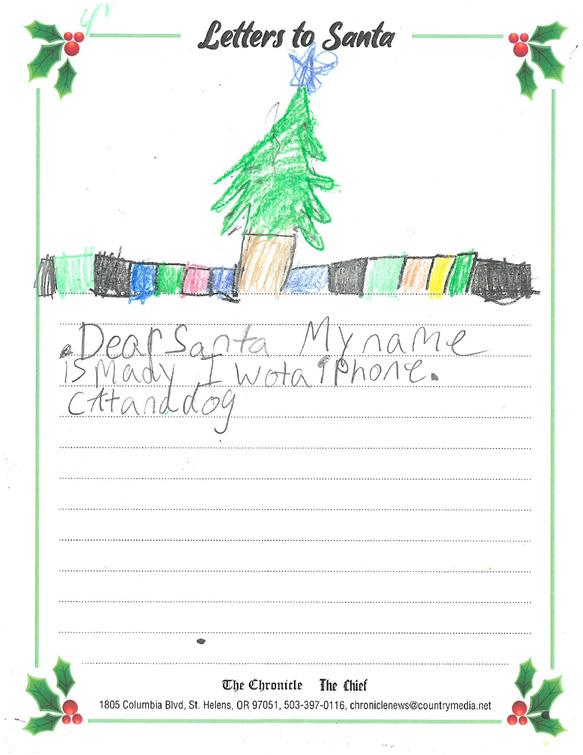 Letters to Santa
Dear Santa My name
is Mady I wota iphone.
CAt and dog
The Chronicle The Chief
1805 Columbia Blvd, St. Helens, OR 97051, 503-397-0116, chroniclenews@countrymedia.net